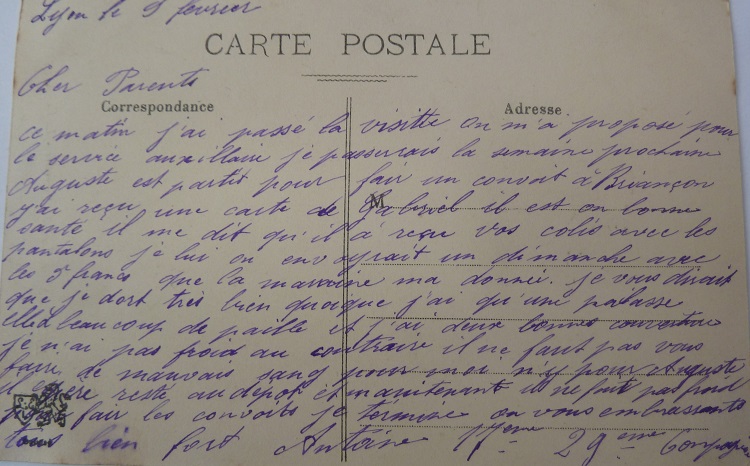 Lyon le 9 fevrier
CARTE POSTALE
Cher Parents
Correspondance
Adresse
ce matin j'ai passé la visitte on m'a proposé pour
le service auxillair je passerais la semaine prochaine
Auguste est partit pour fair un convoit à Briançon
j'ai reçu une carte de Gabriel il est en bonne
santé il me dit qu'il à reçu vos colis avec les
pantalons je lui en envoyrait un dimanche avec
les 5 francs que la marraine ma donnée. je vous dirait
que je dort tres bien quoique j'ai qu'une palasse
beaucoup de paille et j'ai deux bonnes couverture
je n'ai pas froid au contraire il ne faut pas vous
faire de mauvais sang pour moi n'y pour Auguste
il reste au dépot et maintenant il ne fait pas froid
fair les convoits je termine en vous embrassants
tous bien fort Antoine 17eme 29eme
M